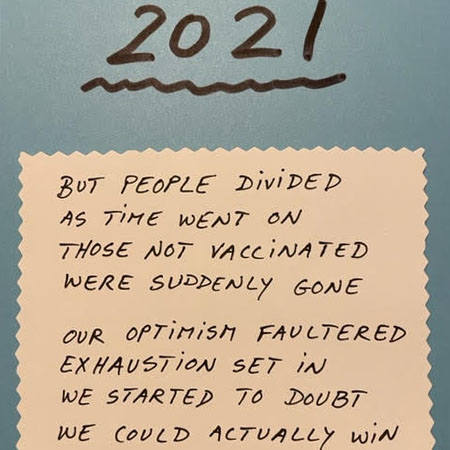 2021
BUT PEOPLE DiViDED
AS TiME WENT ON
THOSE NOT VACCiNATED
WERE SUDDENLY GONE
OUR OPTIMISM FAULTERED
EXHAUSTION SET iN
WE STARTED TO DOUBT
WE COULD ACTUALLY WiN